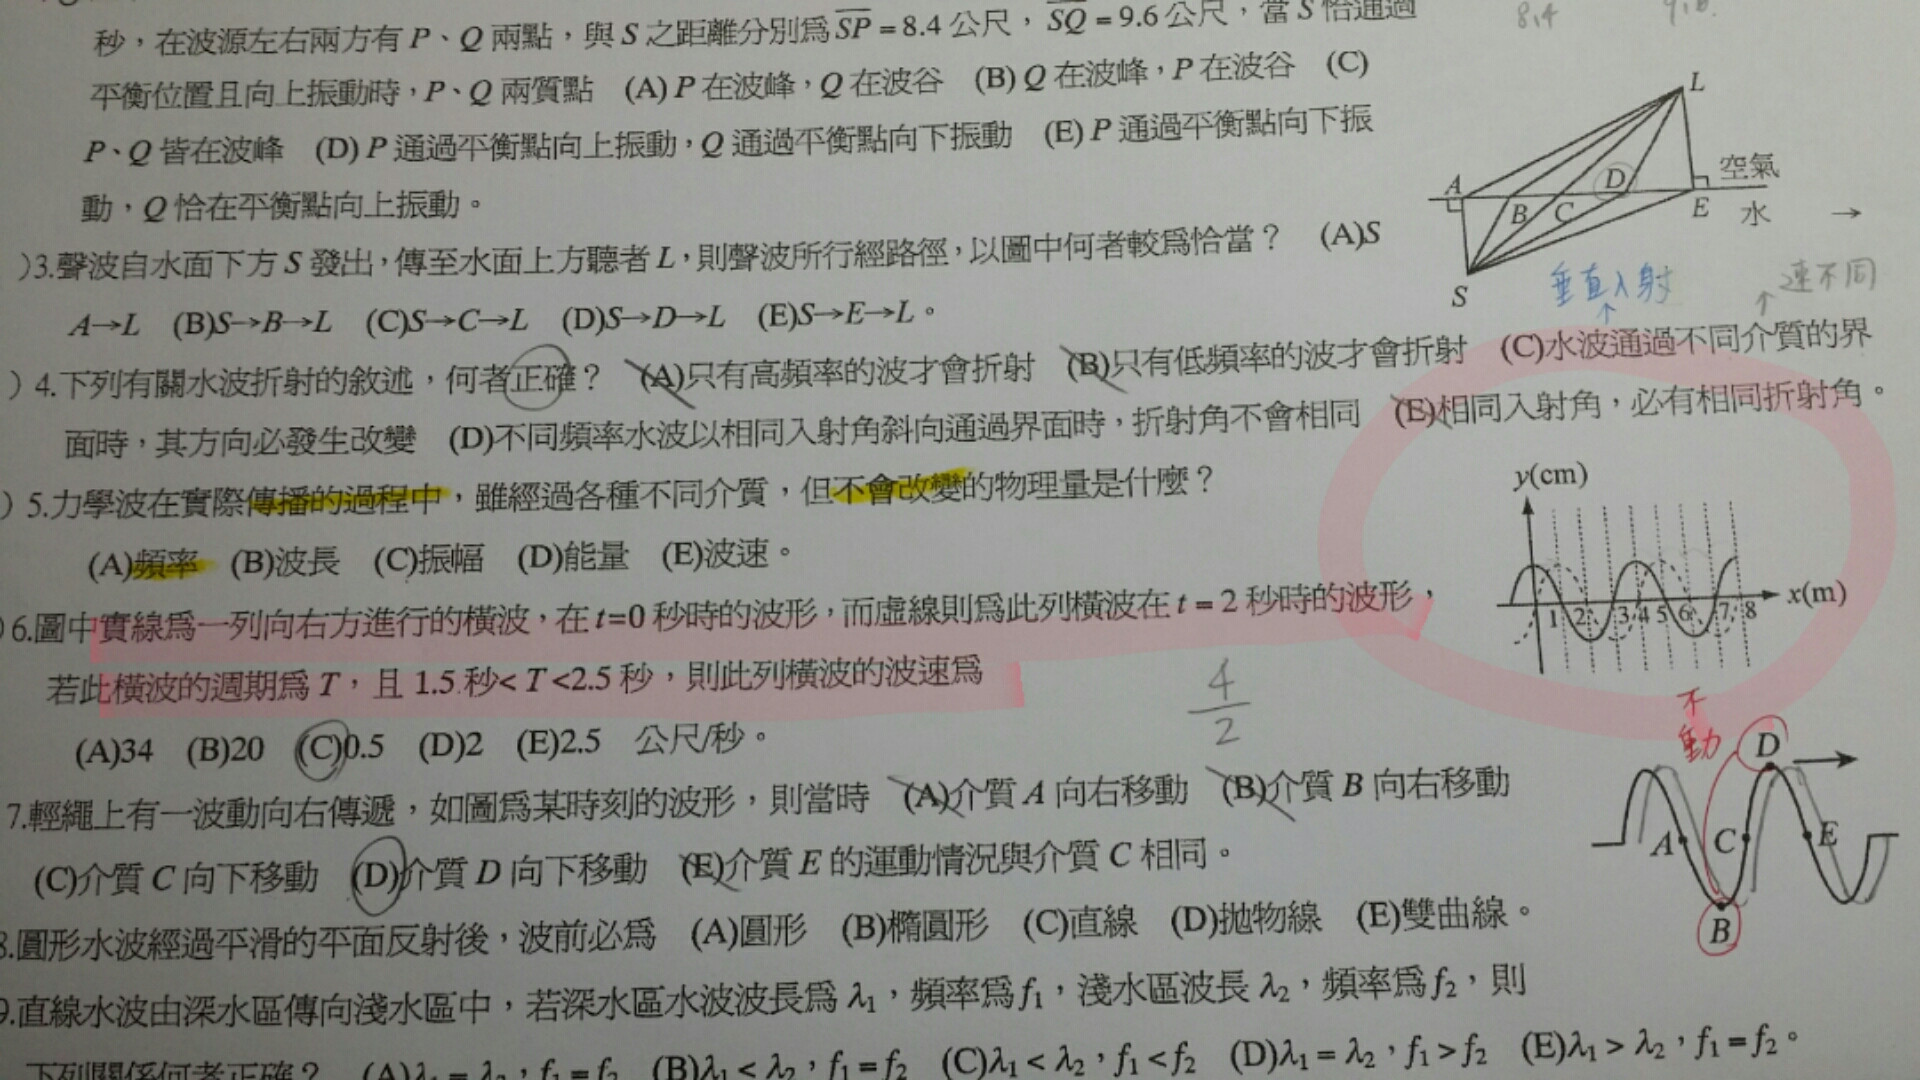 秒，在波源左右兩方有 P、Q 兩點，與 S 之距離分別為 SP = 8.4 公尺， SQ = 9.6 公尺，當 S 恰通過
8.4
平衡位置且向上振動時，P、Q 兩質點 (A) P 在波峰，Q 在波谷 (B) Q 在波峰，P 在波谷 (C)
P、Q 皆在波峰 (D) P 通過平衡點向上振動，Q 通過平衡點向下振動 (E) P 通過平衡點向下振
動，Q 恰在平衡點向上振動。
L
A
D
空氣
B
C
E
水
S
)3.聲波自水面下方 S 發出，傳至水面上方聽者 L，則聲波所行經路徑，以圖中何者較為恰當？ (A)S
A→L (B)S→B→L (C)S→C→L (D)S→D→L (E)S→E→L。
垂直入射
速不同
)4.下列有關水波折射的敘述，何者正確？ (A)只有高頻率的波才會折射 (B)只有低頻率的波才會折射 (C)水波通過不同介質的界
面時，其方向必發生改變 (D)不同頻率水波以相同入射角斜向通過界面時，折射角不會相同 (E)相同入射角，必有相同折射角。
)5.力學波在實際傳播的過程中，雖經過各種不同介質，但不會改變的物理量是什麼？
(A)頻率 (B)波長 (C)振幅 (D)能量 (E)波速。
)6.圖中實線為一列向右方進行的橫波，在 t=0 秒時的波形，而虛線則為此列橫波在 t = 2 秒時的波形，
若此橫波的週期為 T，且 1.5 秒< T <2.5 秒，則此列橫波的波速為
(A)34 (B)20 (C)0.5 (D)2 (E)2.5 公尺/秒。
4
2
y(cm)
1 2 3 4 5 6 7 8
x(m)
7.輕繩上有一波動向右傳遞，如圖為某時刻的波形，則當時 (A)介質 A 向右移動 (B)介質 B 向右移動
(C)介質 C 向下移動 (D)介質 D 向下移動 (E)介質 E 的運動情況與介質 C 相同。
不動
D
A
C
E
B
8.圓形水波經過平滑的平面反射後，波前必為 (A)圓形 (B)橢圓形 (C)直線 (D)拋物線 (E)雙曲線。
9.直線水波由深水區傳向淺水區中，若深水區水波波長為 λ₁，頻率為 f₁，淺水區波長 λ₂，頻率為 f₂，則
下列關係何者正確？ (A)λ₁ = λ₂，f₁ = f₂ (B)λ₁ < λ₂，f₁ = f₂ (C)λ₁ < λ₂，f₁ < f₂ (D)λ₁ = λ₂，f₁ > f₂ (E)λ₁ > λ₂，f₁ = f₂。